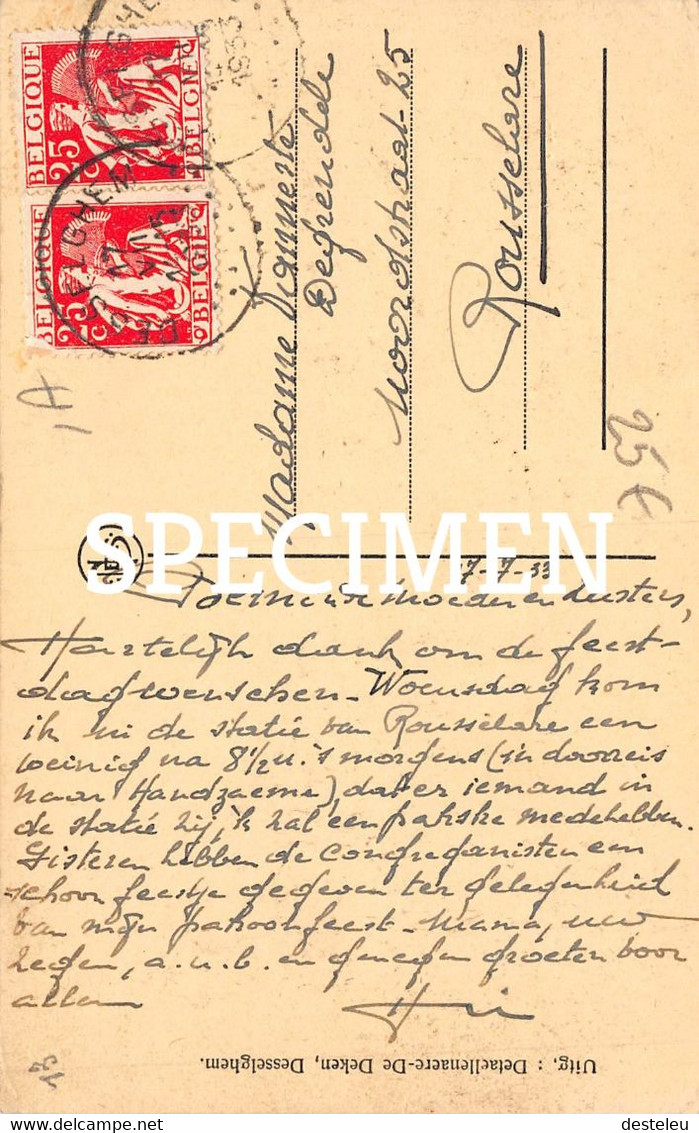 BELGIQUE
25c
BELGIË
BELGIQUE
25c
BELGIË
DESSELGHEM
1933
Madame Vonneste
Degrendde
Noordstraat-25
Rousselare
25 €
SPECIMEN
17-7-33
Beminde Moeder en Zusters,
Hartelijk dank om de feest-
dagwenschen - Woensdag kom
ik in de statie van Rousselare een
weinig na 8 1/2 u. 's morgens (in doorreis
naar Handzaeme), dat er iemand in
de statie zij, 'k zal een pakske medehebben.
Gisteren hebben de Congreganisten een
schoon feestje gegeven ter gelegenheid
van mijn patroonfeest - Mama, uw
zegen, a.u.b. en genegen groeten voor
allen
Uitg, : Detaellenaere-De Deken, Desselghem.
desteleu